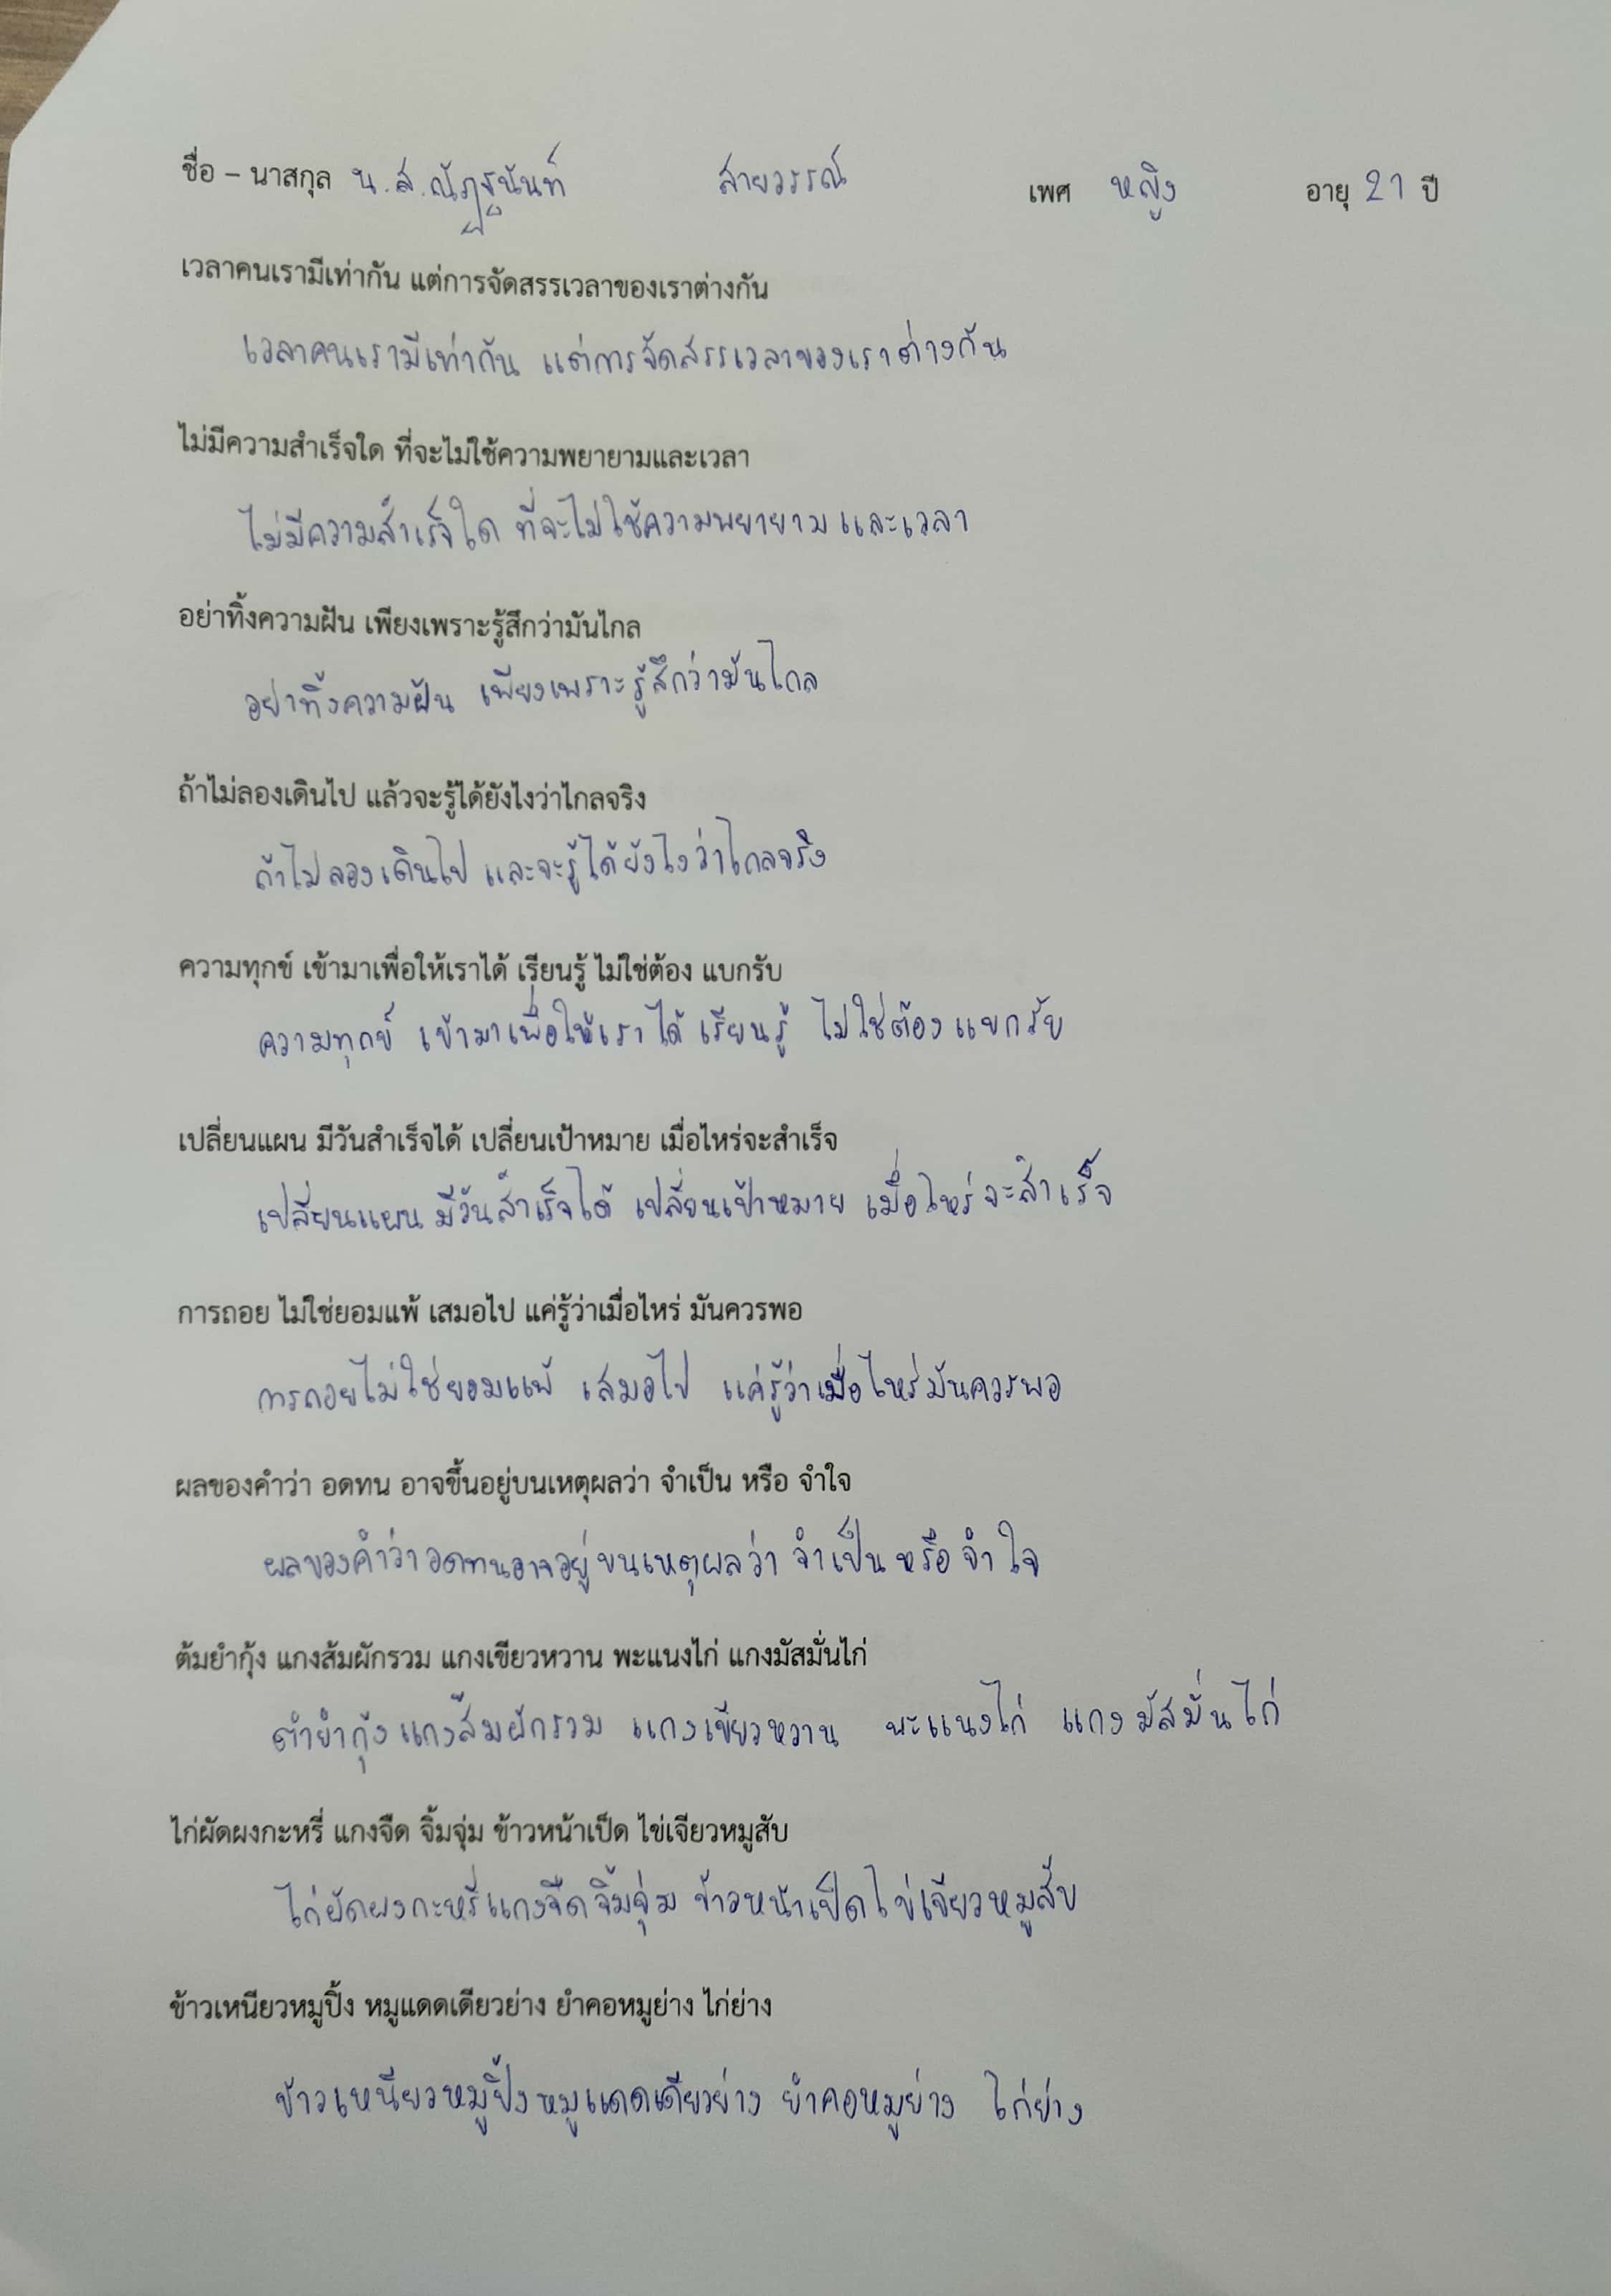 ชื่อ – นาสกุล น.ส.ณัฏฐนันท์ สายวรรณ์ เพศ หญิง อายุ 21 ปี
เวลาคนเรามีเท่ากัน แต่การจัดสรรเวลาของเราต่างกัน
เวลาคนเรามีเท่ากัน แต่การจัดสรรเวลาของเราต่างกัน
ไม่มีความสำเร็จใด ที่จะไม่ใช้ความพยายามและเวลา
ไม่มีความสำเร็จใด ที่จะไม่ใช้ความพยายามและเวลา
อย่าทิ้งความฝัน เพียงเพราะรู้สึกว่ามันไกล
อย่าทิ้งความฝัน เพียงเพราะรู้สึกว่ามันไกล
ถ้าไม่ลองเดินไป แล้วจะรู้ได้ยังไงว่าไกลจริง
ถ้าไม่ลองเดินไป และจะรู้ได้ยังไงว่าไกลจริง
ความทุกข์ เข้ามาเพื่อให้เราได้ เรียนรู้ ไม่ใช่ต้อง แบกรับ
ความทุกข์ เข้ามาเพื่อให้เราได้ เรียนรู้ ไม่ใช่ต้องแบกรับ
เปลี่ยนแผน มีวันสำเร็จได้ เปลี่ยนเป้าหมาย เมื่อไหร่จะสำเร็จ
เปลี่ยนแผน มีวันสำเร็จได้ เปลี่ยนเป้าหมาย เมื่อไหร่จะสำเร็จ
การถอย ไม่ใช่ยอมแพ้ เสมอไป แค่รู้ว่าเมื่อไหร่ มันควรพอ
การถอยไม่ใช่ยอมแพ้ เสมอไป แค่รู้ว่าเมื่อไหร่มันควรพอ
ผลของคำว่า อดทน อาจขึ้นอยู่บนเหตุผลว่า จำเป็น หรือ จำใจ
ผลของคำว่าอดทนอาจอยู่บนเหตุผลว่า จำเป็น หรือ จำใจ
ต้มยำกุ้ง แกงส้มผักรวม แกงเขียวหวาน พะแนงไก่ แกงมัสมั่นไก่
ตำยำกุ้ง แกงส้มผักรวม แกงเขียวหวาน พะแนงไก่ แกงมัสมั่นไก่
ไก่ผัดผงกะหรี่ แกงจืด จิ้มจุ่ม ข้าวหน้าเป็ด ไข่เจียวหมูสับ
ไก่ผัดผงกะหรี่แกงจืดจิ้มจุ่ม ข้าวหน้าเป็ดไข่เจียวหมูสับ
ข้าวเหนียวหมูปิ้ง หมูแดดเดียวย่าง ยำคอหมูย่าง ไก่ย่าง
ข้าวเหนียวหมูปิ้งหมูแดดเดียวย่าง ยำคอหมูย่าง ไก่ย่าง